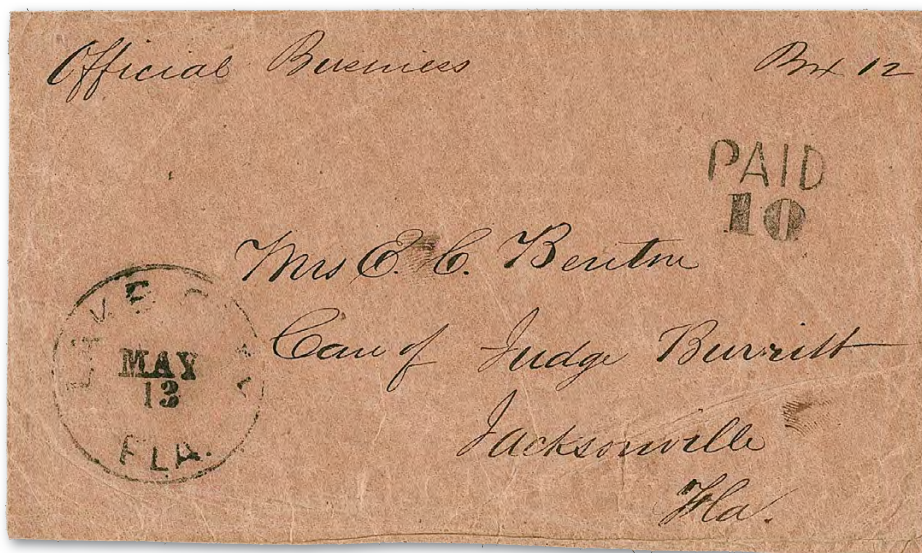 Official Business
Box 12
PAID
10
Mrs E. C. Benton
Care of Judge Burritt
Jacksonville
Fla.
LAKE CITY
MAY
13
FLA.